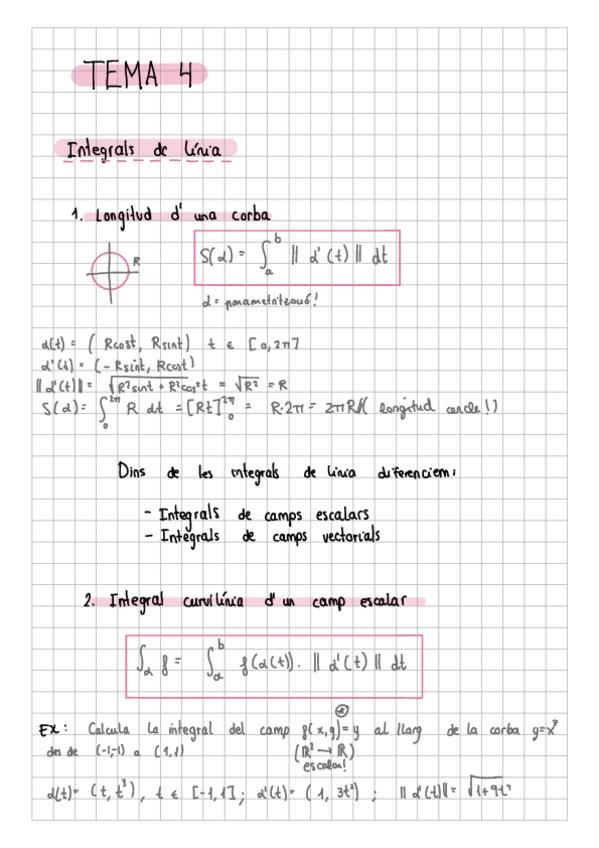 TEMA 4
Integrals de línia
1. Longitud d'una corba
R
S(α) = ∫ₐᵇ || α'(t) || dt
α = parametrització!
α(t) = ( Rcost, Rsint) t ∈ [0, 2π]
α'(t) = (- Rsint, Rcost)
||α'(t)|| = √R²sint + R²cos²t = √R² = R
S(α) = ∫₀²π R dt = [Rt]₀²π = R·2π = 2πR// ( longitud cercle!)
Dins de les integrals de línia diferenciem:
- Integrals de camps escalars
- Integrals de camps vectorials
2. Integral curvilínia d'un camp escalar
∫α f = ∫ₐᵇ f(α(t)). || α'(t) || dt
EX: Calcula la integral del camp f(x,y) = y al llarg de la corba y=x³
des de (-1,-1) a (1,1) (R² → R)
escalar!
α(t) = (t, t³), t ∈ [-1,1]; α'(t) = (1, 3t²) ; || α'(t)|| = √1+9t⁴